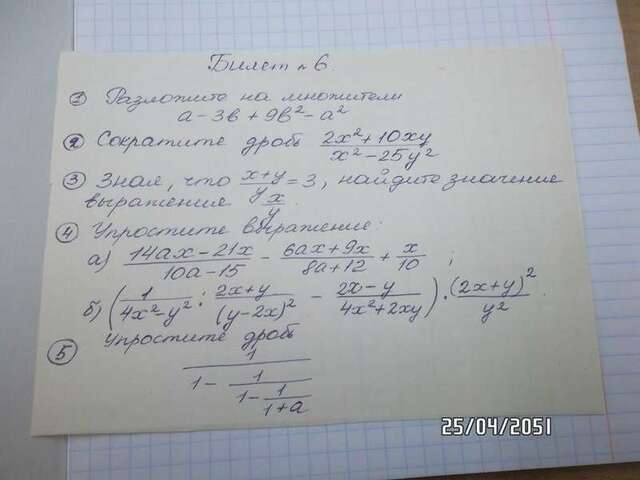 Билет №6.
① Разложите на множители
a - 3в + 9в² - a²
② Сократите дробь (2x² + 10xy)/(x² - 25y²)
③ Зная, что (x+y)/y = 3, найдите значение
выражения x/y
④ Упростите выражение:
а) (14ax - 21x)/(10a - 15) - (6ax + 9x)/(8a + 12) + x/10 ;
б) (1/(4x² - y²) : (2x+y)/(y-2x)² - (2x-y)/(4x²+2xy)) · (2x+y)²/y²
⑤ Упростите дробь
1/(1 - 1/(1 - 1/(1+a)))
25/04/2051